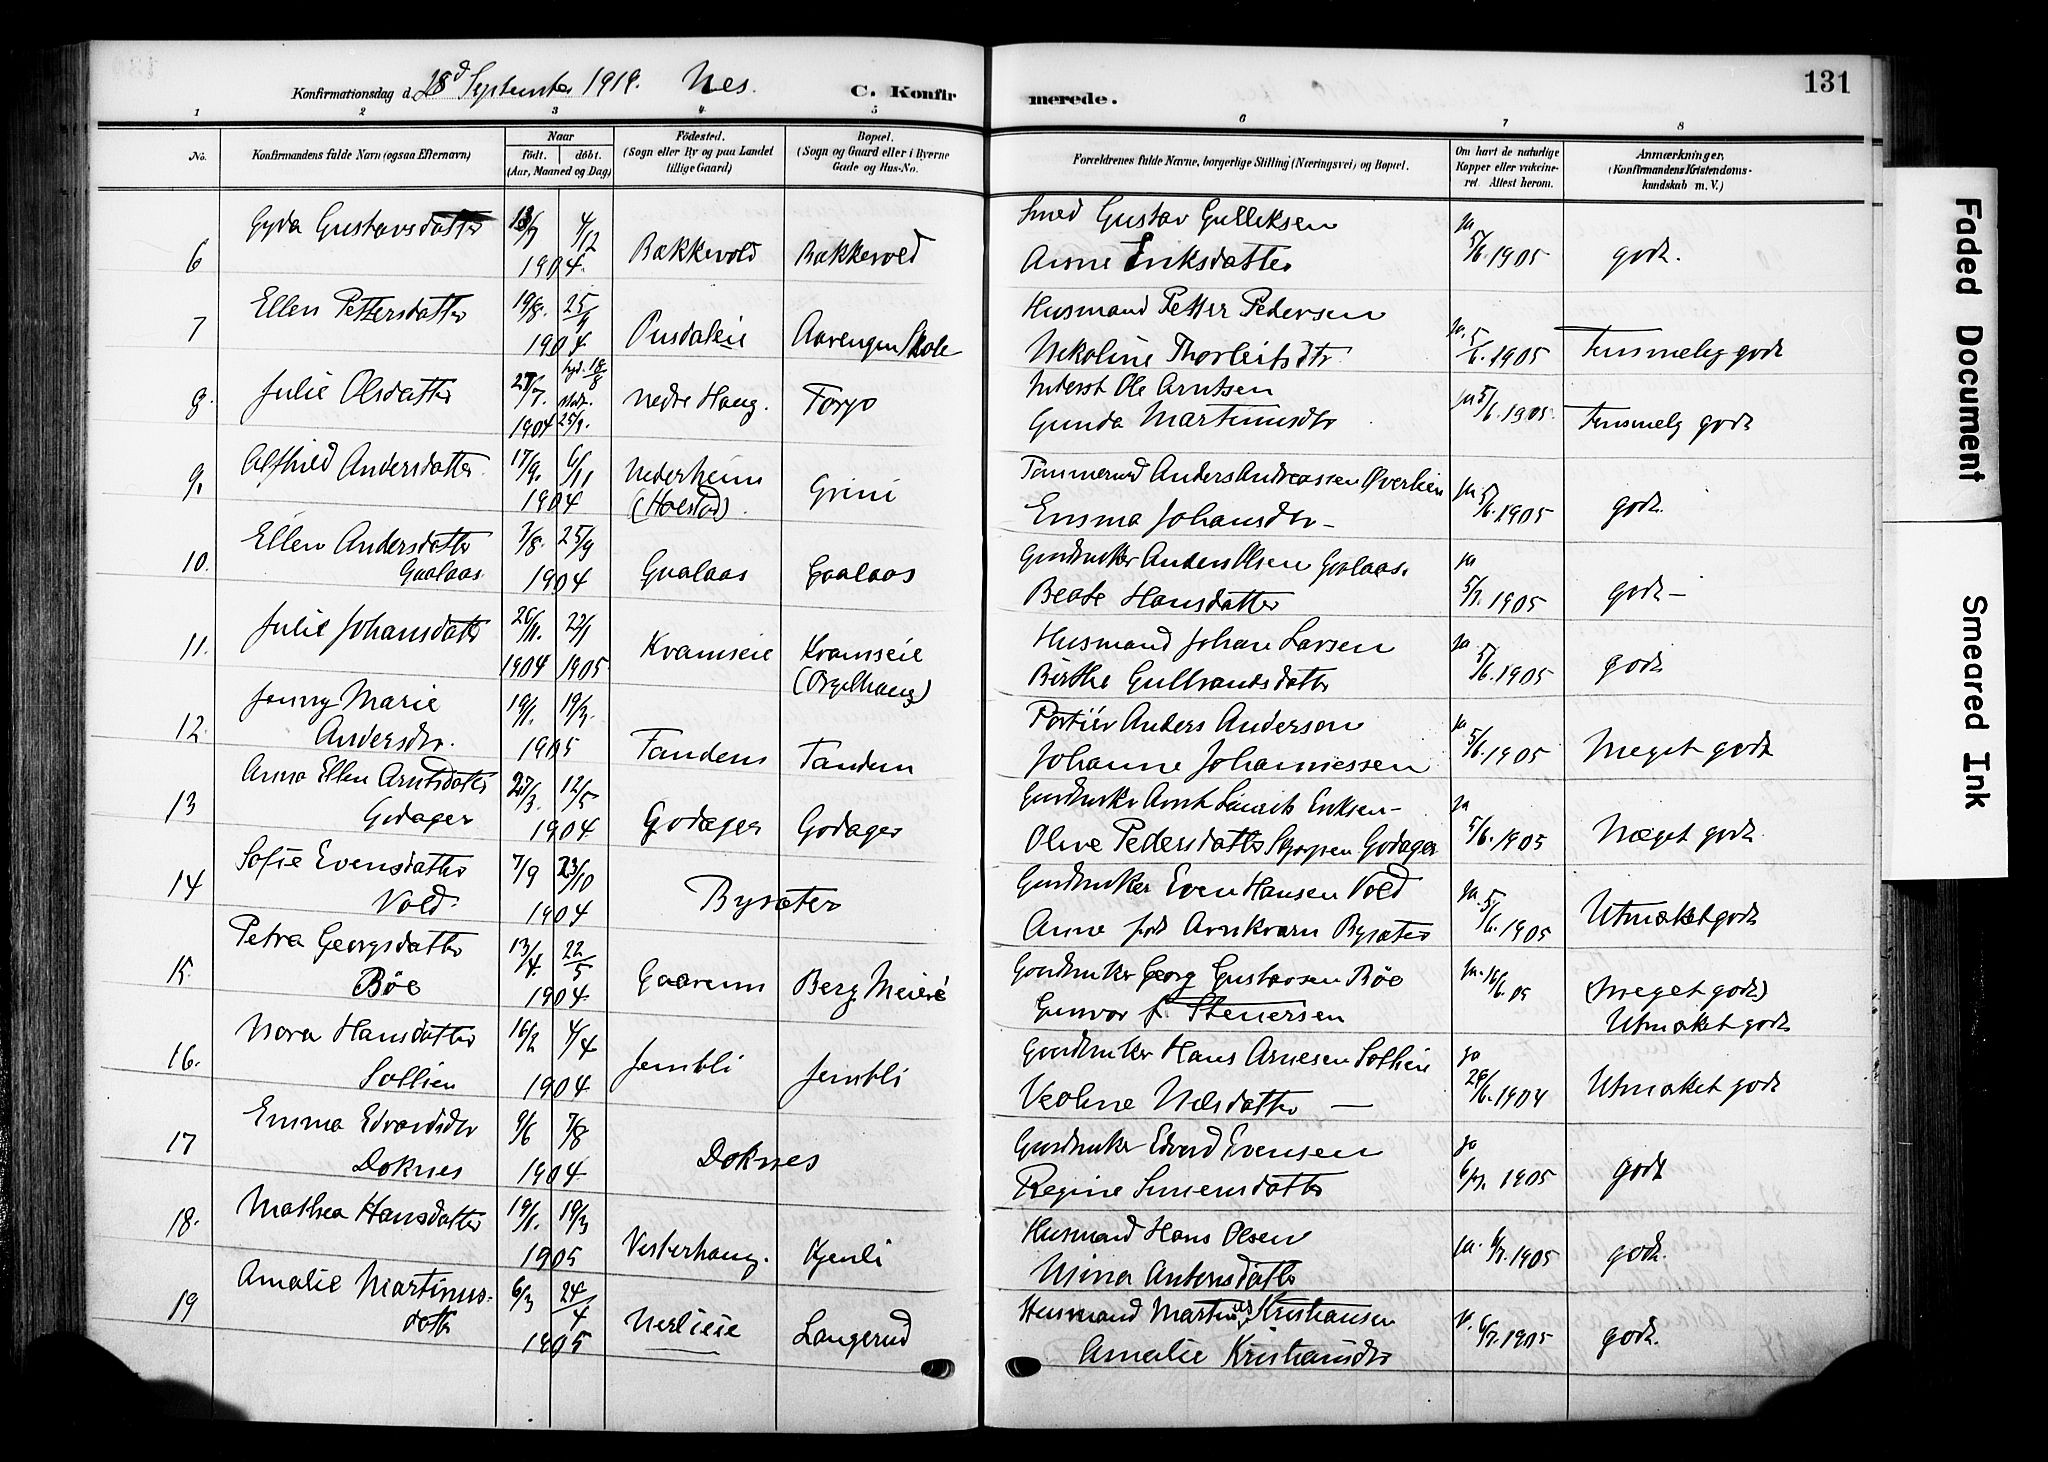 Konfirmationsdag d. 28d September 1919. Nes. C. Konfirmerede. 131
1 2 3 4 5 6 7 8
No. Konfirmandens fulde Navn (ogsaa Efternavn) Naar født. døbt. (Aar, Maaned og Dag) Fødested. (Sogn eller By og paa Landet tillige Gaard) Bopæl. (Sogn og Gaard eller i Byerne Gade og Hus-No. Forældrenes fulde Navne, borgerlige Stilling (Næringsvei) og Bopæl. Om havt de naturlige Kopper eller vakcineret. Attest herom. Anmærkninger, (Konfirmandens Kristendomskundskab m. V.)
Gyda Gustavsdatter 4/12 Smed Gustav Gulliksen ja
6 1904. Bækkevold Bækkevold Anne Eriksdatter 5/6.1905 godt.
Ellen Pettersdatter 19/8. 25/9 Husmand Petter Pedersen
7 1904 Pusdaleie Aavengen Skole Nekoline Thorleifsdtr. ja. 5/6.1905 Temmelig godt
Julie Olsdatter 27/7. 18/8 Inderst Ole Arntsen
8. 1904 25/9. nedre Haug. Torgo Gunda Martinusdtr ja 5/6.1905. Temmelig godt
Alfhild Andersdatter. 17/9. 6/11 Nederheim Tømmermd Anders Andreassen Øverlien
9. 1904 (Halstad). Grini Emma Johansdtr - ja 5/6.1905 godt.
Ellen Andersdatter 7/8. 25/9 Gardbruker Anders Olsen Gaalaas. ja
10. Gaalaas 1904 Gaalaas Gaalaas Beate Hansdatter 5/7.1905 godt -
Julie Johansdatter 26/11. 22/1 Husmand Johan Larsen ja
11. 1904 1905 Kvamseie Kvamseie (Orgelhaug) Birthe Gulbrandsdatter 5/6.1905 godt
Jenny Marie 19/1. 19/3. Portiér Anders Anderson ja
12. Andersdtr. 1905 Tandem Tandem Johanne Johannessen 5/6.1905 Meget godt
Anna Ellen Arntsdatter 27/3. 12/5 Gardbruker Arnt Lauritz Eriksen - ja
13 Godager 1904 Godager Godager Olive Pedersdatter Skjøgsen Godager 5/6.1905 Meget godt
Sofie Evensdatter 7/9 23/10 Gardbruker Even Hansen Vold
14 Vold. 1904 Bysæter Anne født Arnkværn Bysæter ja. 5/6.1905 Utmærket godt
Petra Georgsdatter 13/4. 22/5 Gardbruker Georg Gustavsen Bøe
15. Bøe 1904 Gaarum Berg Meieri Gunvor f. Stenersen ja. 16/6.05 (Meget godt) Utmærket godt
Nora Hansdatter 16/2 4/4 Gardbruker Hans Arnesen Sollien ja
16. Sollien 1904 Jemtli Jemtli Veoline Nilsdatter - 26/6.1904 Utmærket godt
Emma Edvardsdtr 9/6 7/8 Gardbruker Edvard Evensen ja
17 Doknes 1904 Doknes Regine Simensdatter 6/7.1905 godt
Mathea Hansdatter 19/1. 19/3 Husmand Hans Olsen
18. 1905 Vesterhaug. Kjenli Mina Antonsdatter ja. 6/7.1905 godt.
Amalie Martinus- 6/3 24/4 Husmand Martinus Kristiansen
19 datter 1905 Nerlieie Langerud Amalie Kristiansdtr 6/7.1905 godt.
Faded Document
Smeared Ink